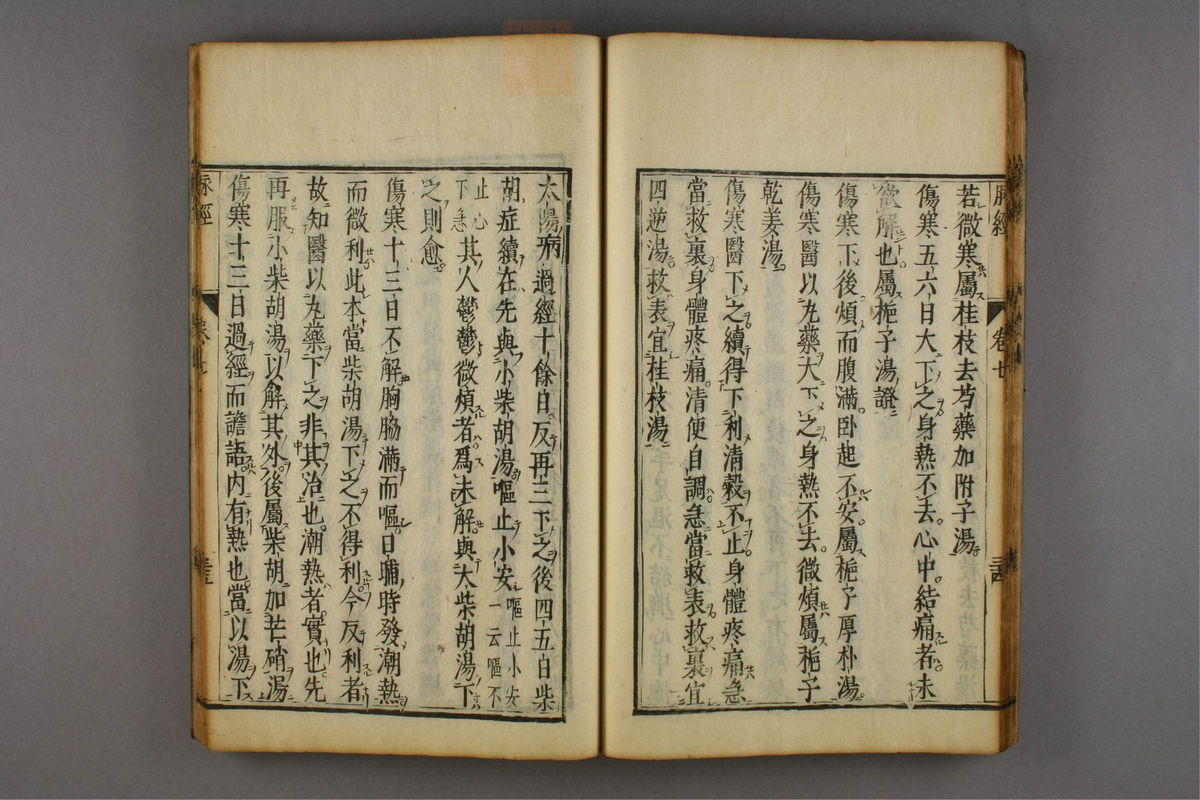 脉經
卷七
若微寒屬桂枝去芍藥加附子湯
傷寒五六日大下之身熱不去心中結痛者未
欲解也屬梔子湯證
傷寒下後煩而腹滿卧起不安屬梔子厚朴湯
傷寒醫以丸藥大下之身熱不去微煩屬梔子
乾姜湯
傷寒醫下之續得下利清穀不止身體疼痛急
當救裏身體疼痛清便自調急當救表救裏宜
四逆湯救表宜桂枝湯
太陽病過經十餘日反再三下之後四五日柴
胡症續在先與小柴胡湯嘔止小安嘔止小安一云嘔不
止心下急其人鬱鬱微煩者爲未解與大柴胡湯下
之則愈
傷寒十三日不解胸脇滿而嘔日晡時發潮熱
而微利此本當柴胡湯下之不得利今反利者
故知醫以丸藥下之非其治也潮熱者實也先
再服小柴胡湯以解其外後屬柴胡加芒硝湯
傷寒十三日過經而譫語內有熱也當以湯下
脉經